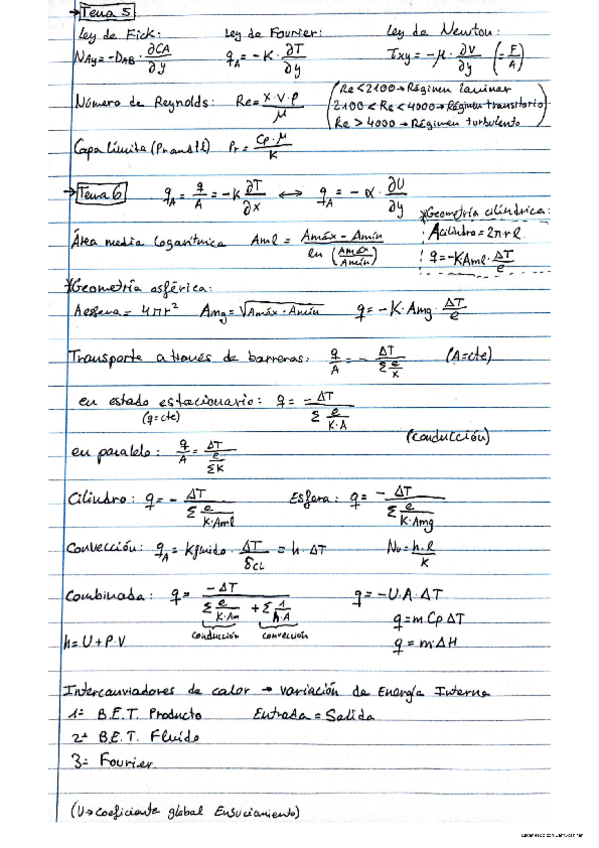 → Tema 5
Ley de Fick: Ley de Fourier: Ley de Newton:
NAy = -DAB · ∂CA/∂y qA = -K · ∂T/∂y τxy = -μ · ∂v/∂y (= F/A)
Número de Reynolds: Re = x·v·ρ/μ (Re < 2100 → Régimen laminar
2100 < Re < 4000 → Régimen transitorio
Re > 4000 → Régimen turbulento)
Capa límite (Prandtl) Pr = Cp·μ/K
→ Tema 6 qA = q/A = -K ∂T/∂x ↔ qA = -α · ∂U/∂y
* Geometría cilíndrica:
Acilindro = 2πrl
q = -KAml · ΔT/e
Área media logarítmica Aml = Amáx - Amín / ln (Amáx/Amín)
* Geometría esférica:
Aesfera = 4πr² Amg = √Amáx · Amín q = -K · Amg · ΔT/e
Transporte a través de barreras: q/A = - ΔT/Σ e/K (A=cte)
en estado estacionario: q = -ΔT/Σ e/K·A
(q=cte)
(conducción)
en paralelo: q/A = ΔT/ e/ΣK
Cilindro: q = - ΔT/Σ e/K·Aml Esfera: q = - ΔT/Σ e/K·Amg
Convección: qA = Kfluido · ΔT/δCL = h · ΔT Nu = h·l/K
Combinada: q = -ΔT / Σ e/K·Am + Σ 1/h·A q = -U·A·ΔT
conducción convección q = m Cp ΔT
h = U + P·V q = m·ΔH
Intercanviadores de calor → variación de Energía Interna
1º B.E.T. Producto Entrada = Salida
2º B.E.T. Fluido
3º Fourier
(U → Coeficiente global Ensuciamiento)